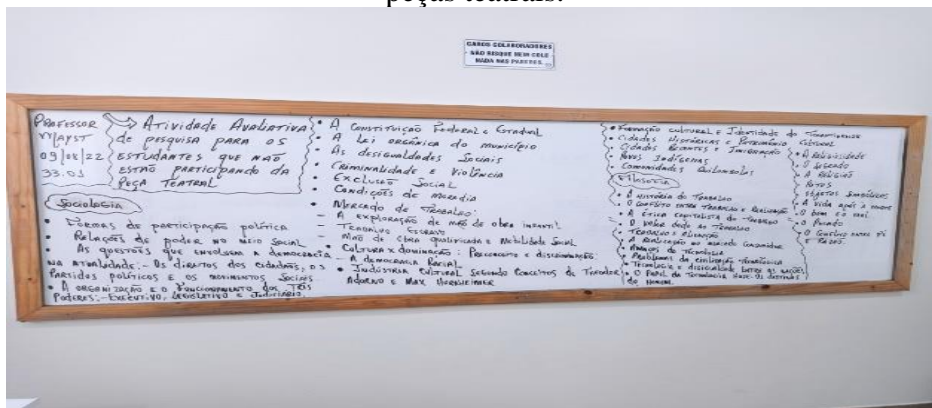 peças teatrais.
CAROS COLABORADORES
NÃO RISQUE NEM COLE
NADA NAS PAREDES
PROFESSOR
MAYST
09/08/22
33.01
ATIVIDADE AVALIATIVA
de pesquisa PARA OS
ESTUDANTES QUE NÃO
ESTÃO PARTICIPANDO DA
PEÇA TEATRAL
Sociologia
• FORMAS DE PARTICIPAÇÃO POLÍTICA
• Relações de poder no meio social
• As questões que envolvem a democracia
na atualidade: - Os direitos dos cidadãos, os
Partidos políticos e os movimentos sociais
• A organização e o funcionamento dos três
Poderes: - Executivo, Legislativo e Judiciário.
• A Constituição Federal e Estadual
• A Lei orgânica do município
• As desigualdades sociais
• Criminalidade e Violência
• Exclusão Social
• Condições de moradia
• Mercado de Trabalho:
- A exploração de mão de obra infantil
- Trabalho Escravo
- Mão de obra qualificada e Mobilidade Social
• Cultura x dominação: Preconceito e discriminação:
- A democracia Racial
• Indústria Cultural segundo conceitos de Theodor
Adorno e Max Horkheimer
• Formação cultural e Identidade do
• Cidades Históricas e Patrimônio Cultural
• Cidades Recentes e Imigração
• Povos Indígenas
• Comunidades Quilombolas
Filosofia
• A história do Trabalho
• O conflito entre Trabalho e Realização
• A ética capitalista do trabalho
• O valor dado ao Trabalho
• Trabalho e alienação
• A realização no mercado consumidor
• Avanços da Tecnologia
• Problemas da civilização tecnológica
• Tecnologia e desigualdade entre as nações
• O papel da Tecnologia
do Homem.
• A Religiosidade
• O sagrado
• A Religião
• Ritos
• Objetos simbólicos
• A vida após a morte
• O bem e o mal
• O Pecado
• O conflito entre Fé
e Razão.